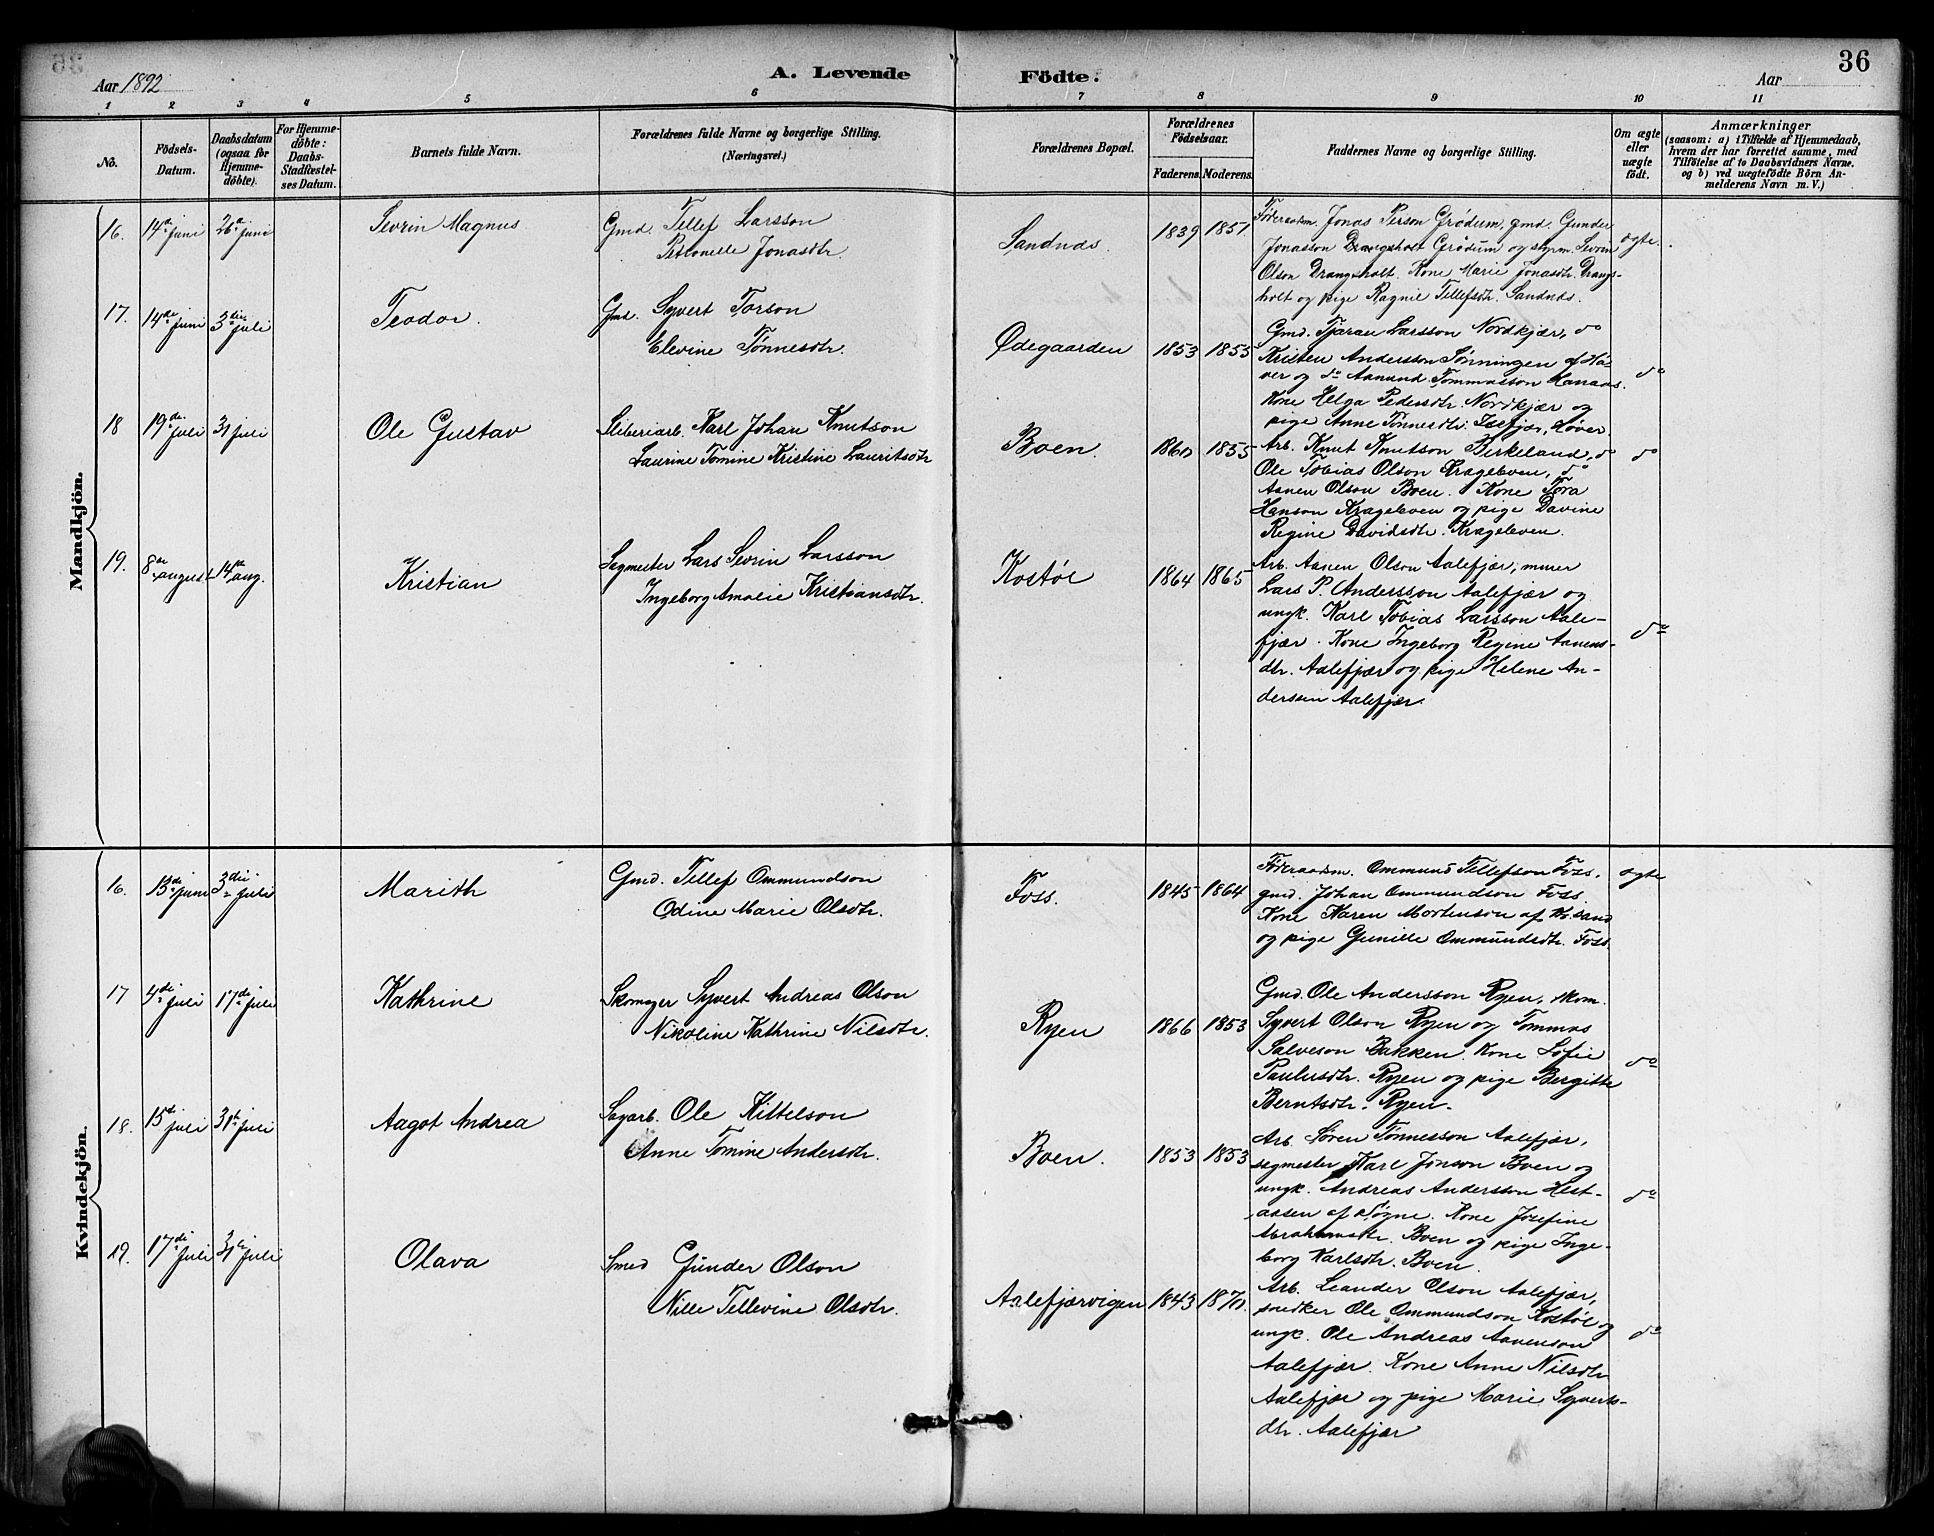 36
Aar 1892
A. Levende Födte.
Aar
1 2 3 4 5 6 7 8 9 10 11
No.
Födsels-Datum.
Daabsdatum (ogsaa for Hjemme-döbte).
For Hjemme-döbte: Daabs-Stadfæstel-ses Datum.
Barnets fulde Navn.
Forældrenes fulde Navne og borgerlige Stilling.
(Næringsvei.)
Forældrenes Bopæl.
Forældrenes Födselsaar.
Faderens. Moderens.
Faddernes Navne og borgerlige Stilling.
Om ægte eller uægte födt.
Anmærkninger
(saasom: a) i Tilfælde af Hjemmedaab, hvem der har forrettet samme, med Tilföielse af to Daabsvidners Navne, og b) ved uægtefödte Börn An-melderens Navn m. V.)
Mandkjön.
16. 14de juni 26de juni
Sevrin Magnus
Gmd. Tellef Larsson
Petronelle Jonasdtr.
Sandnæs. 1839 1851
Føderaadsm. Jonas Person Grødum, gmd. Gunder
Jonasson Drangsholt Grødum og styrm. Sevrin
Olson Drangsholt. Kone Marie Jonasdtr. Drangs-
holt og pige Ragnil Tellefsdtr. Sandnæs.
ægte.
17. 14de juni 3die juli
Teodor.
Gmd. Syvert Torson
Elevine Tønnesdtr.
Ødegaarden 1853 1855
Gmd. Tjøran Larsson Nordkjær, do
Kristen Andersson Lønningen af Hø-
ver og do Aanund Tommasson Hanaas.
Kone Helga Pedersdtr. Nordkjær og
pige Anne Tønnesdtr. Isefjær, Høver.
do
18 19de juli 31 juli
Ole Gustav
Sliberiarb. Karl Johan Knutson
Laurine Tomine Kristine Lauritsdtr
Boen. 1860 1855
Arb. Knut Knutson Birkeland, do
Ole Tobias Olson Krageboen, do
Aanen Olson Boen. Kone Tora
Hanson Krageboen og pige Davine
Regine Davidsdtr. Krageboen.
do
19. 8de august 14de aug.
Kristian
Sagmester Lars Sevrin Larsson
Ingeborg Amalie Kristiansdtr.
Kostøl 1864 1865
Arb. Aanen Olson Aalefjær, murer
Lars P. Andersson Aalefjær og
ungk. Karl Tobias Larsson Aale-
fjær. Kone Ingeborg Regine Aanens-
dtr. Aalefjær og pige Helene An-
derssen Aalefjær.
do
Kvindekjön.
16. 13de juni 3die juli
Marith
Gmd. Tellef Ommundson
Odine Marie Olsdtr.
Foss. 1845 1864
Føderaadsm. Ommund Tellefson Foss,
gmd. Johan Ommundson Foss.
Kone Karen Mortenson af Kr.sand
og pige Gunille Ommundsdtr. Foss
ægte
17 4de juli 17de juli
Kathrine
Skomager Syvert Andreas Olson
Nikoline Kathrine Nilsdtr.
Ryen 1866 1853
Gmd. Ole Andersson Ryen, skom.
Syvert Olson Ryen og Tommas
Salveson Bakken. Kone Sofie
Paulusdtr. Ryen og pige Bergitte
Berntsdtr. Ryen.
do
18. 15de juli 31te juli
Aagot Andrea
Sagarb. Ole Kittelson
Anne Tomine Andersdtr.
Boen. 1853 1853
Arb. Søren Tønnesson Aalefjær,
sagmester Karl Jonson Boen og
ungk. Andreas Andersson Hest-
aasen af Søgne. Kone Josefine
Abrahamsdtr. Boen og pige Inge-
borg Karlsdtr. Boen.
do
19. 17de juli 31te juli
Olava
Smed Gunder Olson
Nille Tellevine Olsdtr.
Aalefjærvigen 1843 1870.
Arb. Leander Olson Aalefjær,
snedker Ole Ommundson Kostøl og
ungk. Ole Andreas Aanenson
Aalefjær. Kone Anne Nilsdtr
Aalefjær og pige Marie Syverts-
dtr. Aalefjær
do